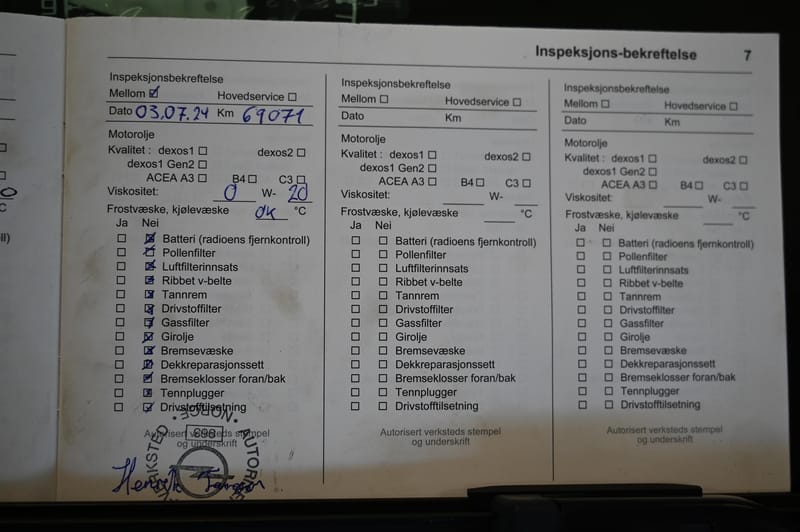 Inspeksjons-bekreftelse 7
Inspeksjonsbekreftelse
Mellom Hovedservice
Dato 03.07.24 Km 69071
Motorolje
Kvalitet : dexos1 dexos2
dexos1 Gen2
ACEA A3 B4 C3
Viskositet: 0 W- 20
Frostvæske, kjølevæske OK °C
Ja Nei
Batteri (radioens fjernkontroll)
Pollenfilter
Luftfilterinnsats
Ribbet v-belte
Tannrem
Drivstoffilter
Gassfilter
Girolje
Bremsevæske
Dekkreparasjonssett
Bremseklosser foran/bak
Tennplugger
Drivstofftilsetning
Autorisert verksteds stempel
og underskrift
898
Henrik
Inspeksjonsbekreftelse
Mellom Hovedservice
Dato Km
Motorolje
Kvalitet : dexos1 dexos2
dexos1 Gen2
ACEA A3 B4 C3
Viskositet: W-
Frostvæske, kjølevæske °C
Ja Nei
Batteri (radioens fjernkontroll)
Pollenfilter
Luftfilterinnsats
Ribbet v-belte
Tannrem
Drivstoffilter
Gassfilter
Girolje
Bremsevæske
Dekkreparasjonssett
Bremseklosser foran/bak
Tennplugger
Drivstofftilsetning
Autorisert verksteds stempel
og underskrift
Inspeksjonsbekreftelse
Mellom Hovedservice
Dato Km
Motorolje
Kvalitet : dexos1 dexos2
dexos1 Gen2
ACEA A3 B4 C3
Viskositet: W-
Frostvæske, kjølevæske °C
Ja Nei
Batteri (radioens fjernkontroll)
Pollenfilter
Luftfilterinnsats
Ribbet v-belte
Tannrem
Drivstoffilter
Gassfilter
Girolje
Bremsevæske
Dekkreparasjonssett
Bremseklosser foran/bak
Tennplugger
Drivstofftilsetning
Autorisert verksteds stempel
og underskrift